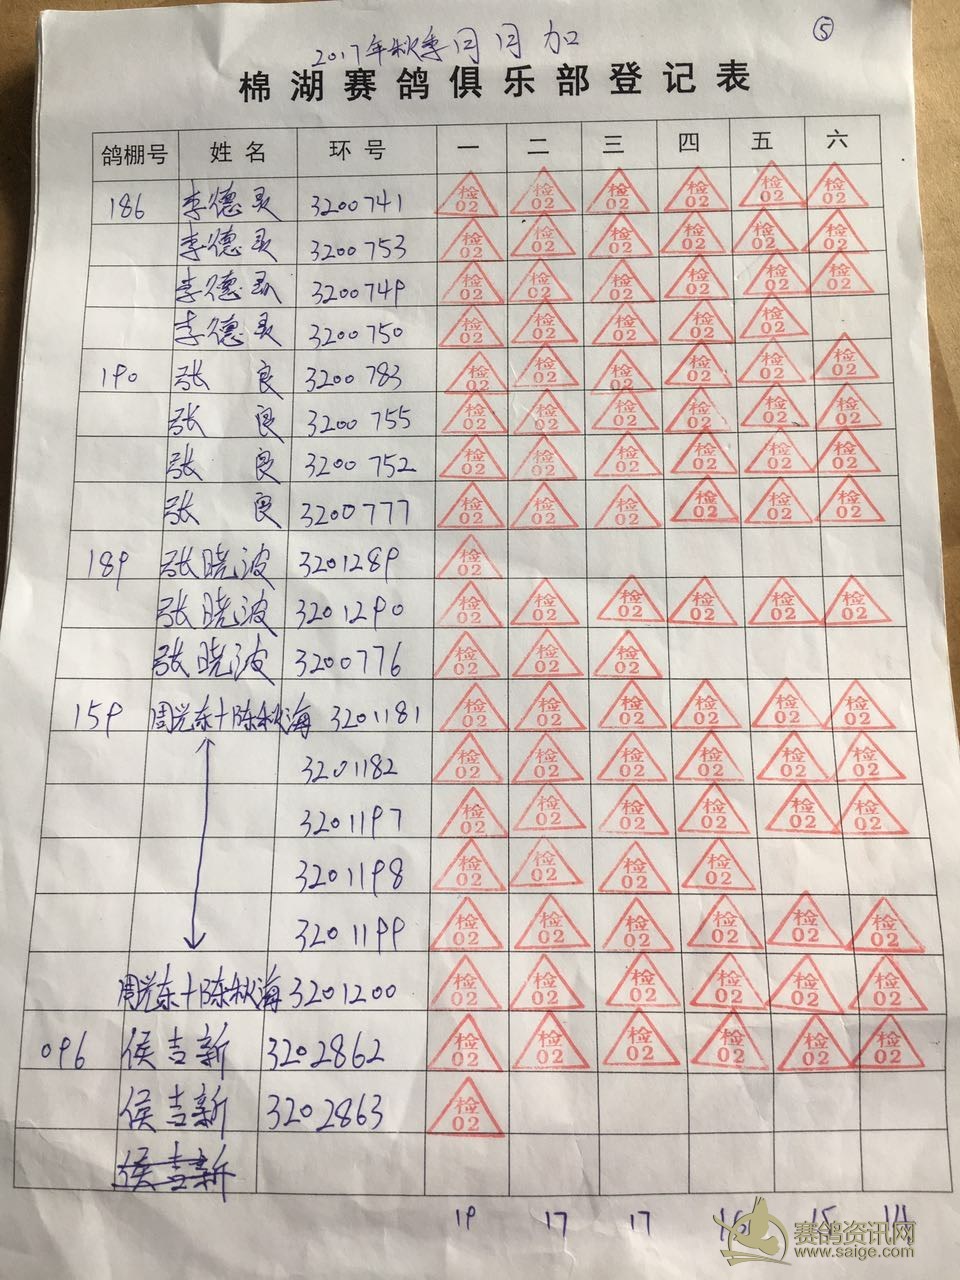 ⑤
2017年秋季 加
棉湖赛鸽俱乐部登记表
鸽棚号 姓名 环号 一 二 三 四 五 六
186 李德灵 3200741 检02 检02 检02 检02 检02 检02
李德灵 3200753 检02 检02 检02 检02 检02 检02
李德灵 3200749 检02 检02 检02 检02 检02 检02
李德灵 3200750 检02 检02 检02 检02 检02
190 张良 3200783 检02 检02 检02 检02 检02 检02
张良 3200755 检02 检02 检02 检02 检02 检02
张良 3200752 检02 检02 检02 检02 检02 检02
张良 3200777 检02 检02 检02 检02 检02 检02
189 张晓波 3201289 检02
张晓波 3201290 检02 检02 检02 检02 检02 检02
张晓波 3200776 检02 检02 检02
159 周光东+陈秋海 3201181 检02 检02 检02 检02 检02 检02
3201182 检02 检02 检02 检02 检02 检02
3201197 检02 检02 检02 检02 检02 检02
3201198 检02 检02 检02 检02
3201199 检02 检02 检02 检02 检02 检02
周光东+陈秋海 3201200 检02 检02 检02 检02 检02 检02
096 侯吉新 3202862 检02 检02 检02 检02 检02 检02
侯吉新 3202863 检02
侯吉新
19 17 17 16 15 14
赛鸽资讯网
www.saige.com